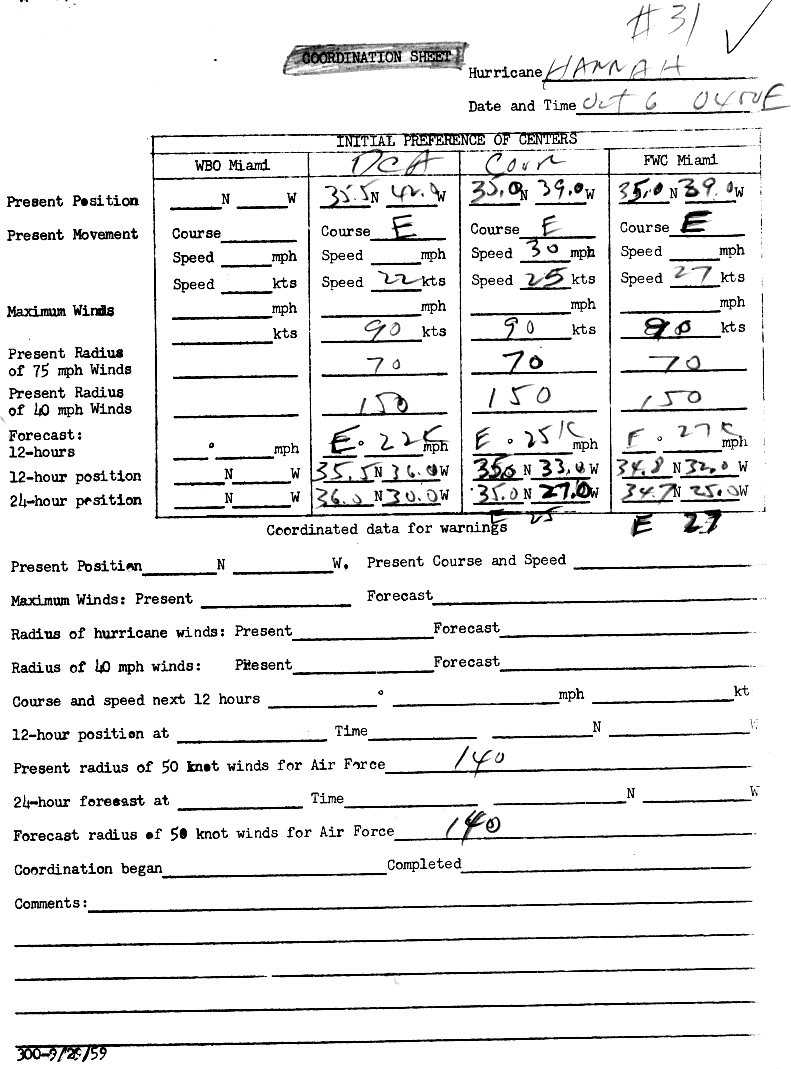 #31 ✓
COORDINATION SHEET
Hurricane HANNAH
Date and Time Oct 6 0400E
INITIAL PREFERENCE OF CENTERS
WBO Miami DCA Coor FWC Miami
Present Position ______N ______W 35.5N 42.0W 35.0N 39.0W 35.0N 39.0W
Present Movement Course ______ Course E Course E Course E
Speed ______mph Speed ______mph Speed 30 mph Speed ______mph
Speed ______kts Speed 22kts Speed 25kts Speed 27kts
Maximum Winds ______mph ______mph ______mph ______mph
______kts 90 kts 90 kts 90 kts
Present Radius
of 75 mph Winds ______ 70 70 70
Present Radius
of 40 mph Winds ______ 150 150 150
Forecast:
12-hours ___°______mph E ° 22K mph E ° 25K mph E ° 27K mph
12-hour position ______N ______W 35.5N 36.0W 35.0N 33.0W 34.8N 32.0W
24-hour position ______N ______W 36.0N 30.0W 35.0N 27.0W 34.7N 25.0W
E 25 E 27
Coordinated data for warnings
Present Position______N ______W. Present Course and Speed ______
Maximum Winds: Present ______ Forecast______
Radius of hurricane winds: Present______Forecast______
Radius of 40 mph winds: Present______Forecast______
Course and speed next 12 hours ______°______mph ______kt
12-hour position at ______ Time______ ______N ______W
Present radius of 50 knot winds for Air Force 140
24-hour forecast at ______ Time______ ______N ______W
Forecast radius of 50 knot winds for Air Force 140
Coordination began______Completed______
Comments:______
300-9/28/59